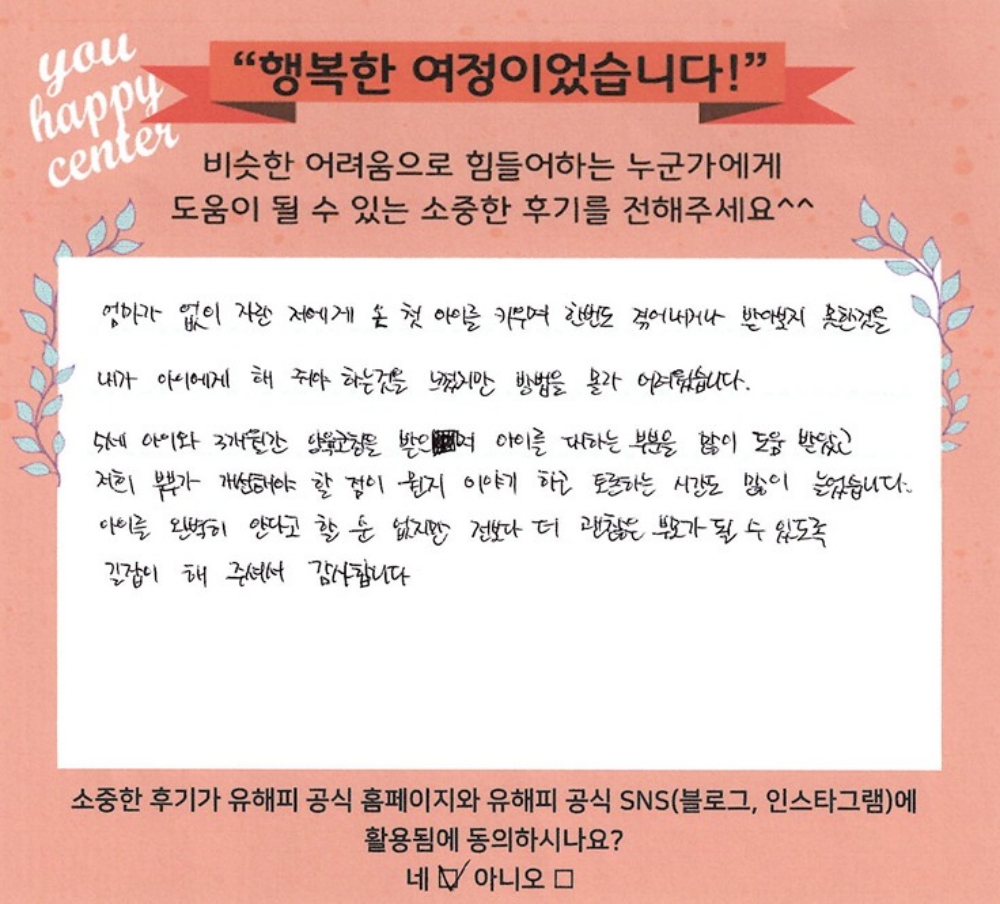 you
happy
center
“행복한 여정이었습니다!”
비슷한 어려움으로 힘들어하는 누군가에게
도움이 될 수 있는 소중한 후기를 전해주세요^^
엄마가 없이 자란 저에게 온 첫 아이를 키우며 한번도 겪어내거나 받아보지 못한것을
내가 아이에게 해 줘야 하는것을 느꼈지만 방법을 몰라 어려웠습니다.
5세 아이와 3개월간 양육코칭을 받으며 아이를 대하는 부분을 많이 도움 받았고
저희 부부가 개선해야 할 점이 뭔지 이야기 하고 토론하는 시간도 많이 늘었습니다.
아이를 완벽히 안다고 할 순 없지만 전보다 더 괜찮은 부모가 될 수 있도록
길잡이 해 주셔서 감사합니다
소중한 후기가 유해피 공식 홈페이지와 유해피 공식 SNS(블로그, 인스타그램)에
활용됨에 동의하시나요?
네 ☑ 아니오 ☐